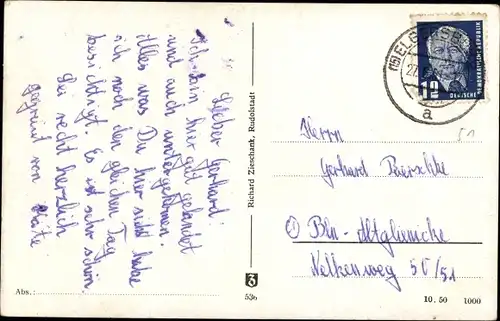 Lieber Gerhard!
Ich bin hier gut gelandet
und auch untergekommen.
Alles was Du hier siehst habe
ich noch den gleichen Tag
besichtigt. Es ist sehr schön
Sei recht herzlich
gegrüßt von Käte
Abs.:
Richard Zieschank, Rudolstadt
536
(15) ELGERSB
27
a
12
DEUTSCHE
DEMOKRATISCHE REPUBLIK
51
Herrn
Gerhard
Bln - Altglienicke
Nelkenweg 50/51
10.50 1000